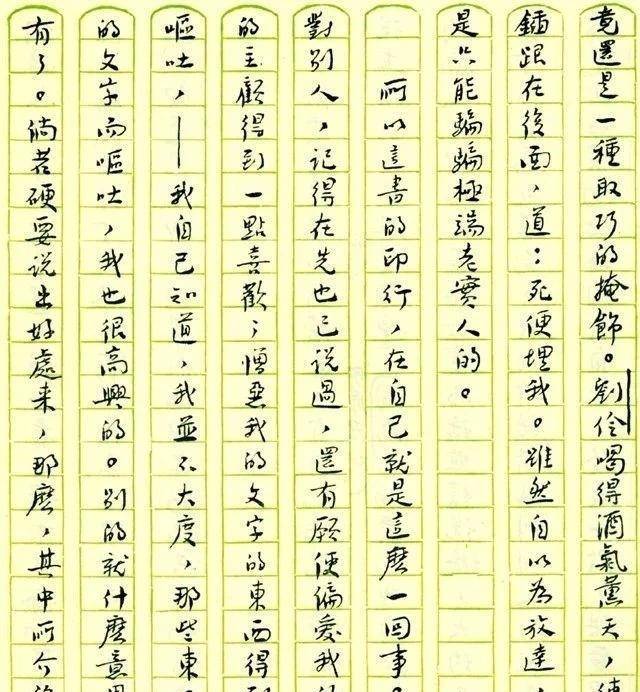 竟還是一種取巧的掩飾。劉伶喝得酒氣薰天，使
鍤跟在後面，道：死便埋我。雖然自以為放達
是只能騙騙極端老實人的。
所以這書的印行，在自己就是這麼一回事。
對別人，記得在先也已說過，還有願使偏愛我
的主顧得到一點喜歡；憎惡我的文字的東西得到
嘔吐，——我自己知道，我並不大度，那些東
的文字而嘔吐，我也很高興的。別的就什麼意
有了。倘若硬要說出好處來，那麼，其中所介